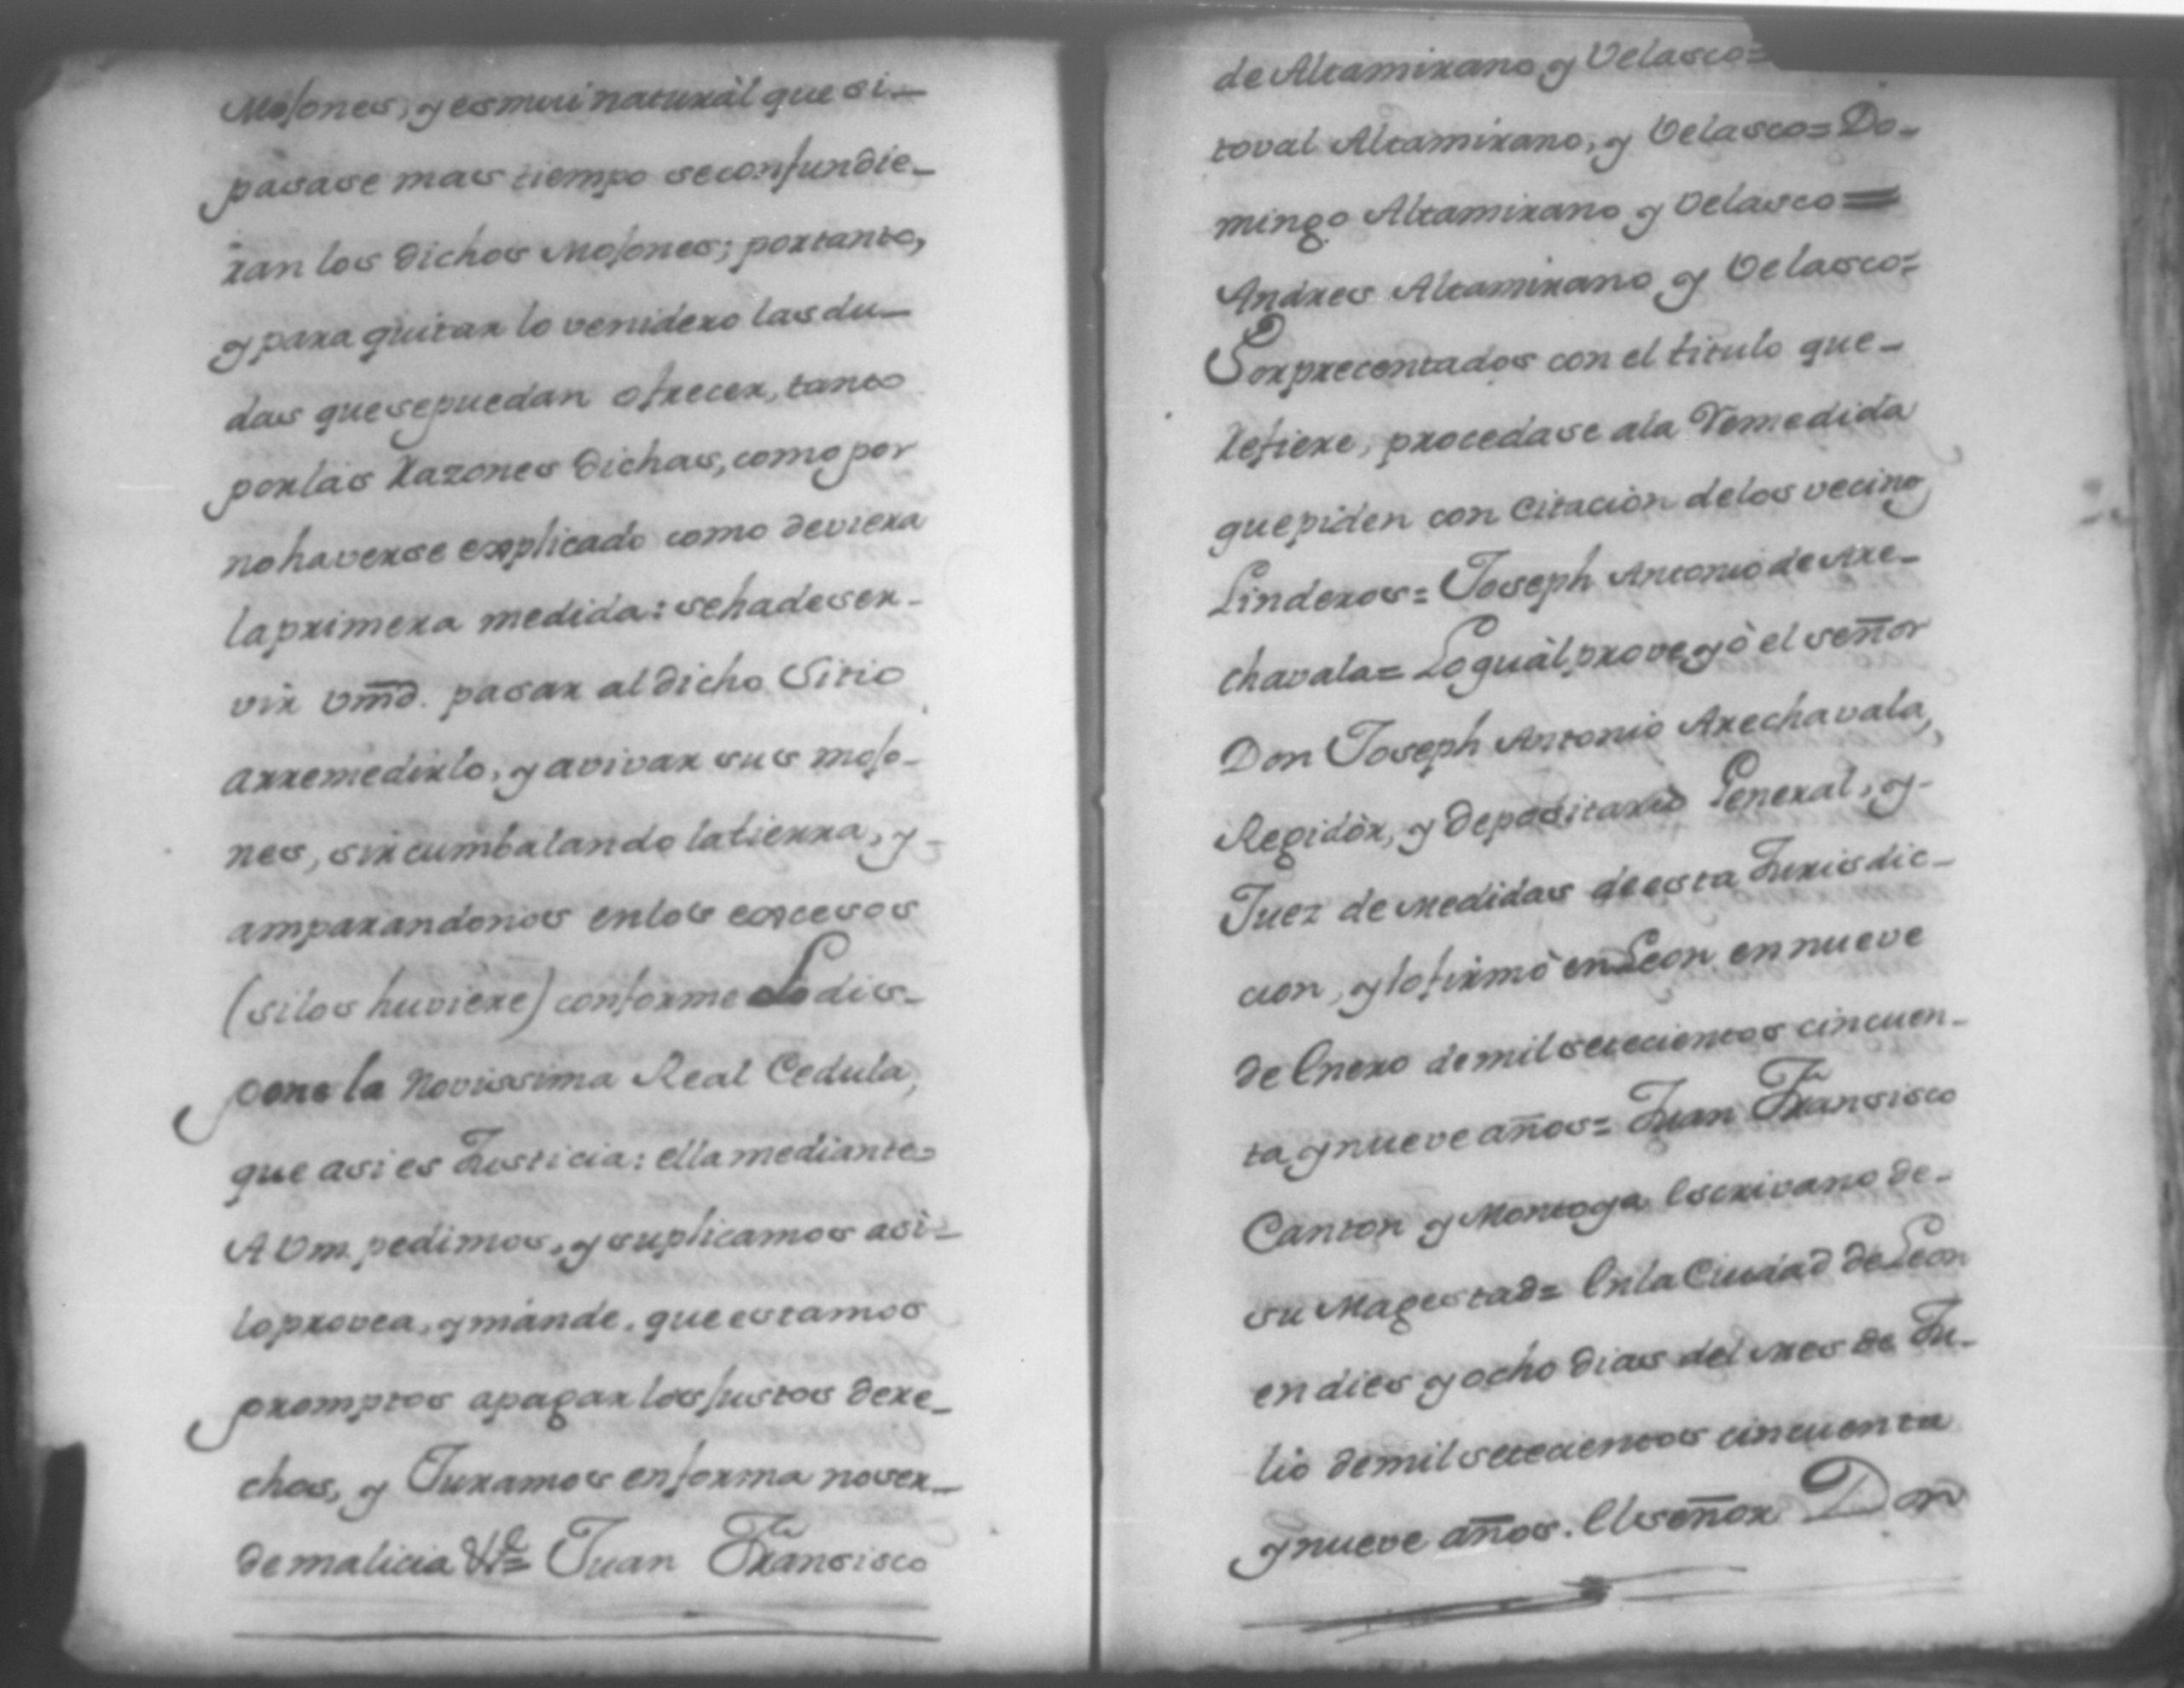 Mojones, y es mui naturàl que si-
pasase mas tiempo se confundie-
ran los dichos Mojones; portanto,
y para quitar lo venidero las du-
das que se puedan ofrecer, tanto
por las Razones dichas, como por
no haverse explicado como deviera
la primera medida: se ha de ser-
vir Vm̃d. pasar al dicho Sitio
arremedirlo, y avivar sus mojo-
nes, sircumbalando la tierra, y-
amparandonos en los excesos
(si los huviere) conforme Lo dis-
pone la Novissima Real Cedula,
que asi es Justicia: ella mediante=
A Vm. pedimos, y suplicamos asi-
lo provea, y mande, que estamos
promptos apagar los justos dere-
chos, y Juramos en forma no ser-
de malicia &ª= Juan Fransisco
de Altamirano y Velasco=
toval Altamirano, y Velasco= Do-
mingo Altamirano y Velasco=
Andres Altamirano y Velasco=
Por precentados con el titulo que-
Refiere, procedase ala Remedida
que piden con Citacion de los vecinos
Linderos= Joseph Antonio de Are-
chavala= Lo quàl proveyò el señor
Don Joseph Antonio Arechavala,
Regidòr, y Depositario General, y-
Juez de Medidas de esta Jurisdic-
cion, y lo firmò en Leon en nueve
de Enero de mil setecientos cincuen-
ta, y nueve años= Juan Fransisco
Canton y Montoya Escrivano de-
su Magestad= En la Ciudad de Leon
en dies y ocho dias del Mes de Ju-
lio de mil setecientos cincuenta
y nueve años. El señor Don